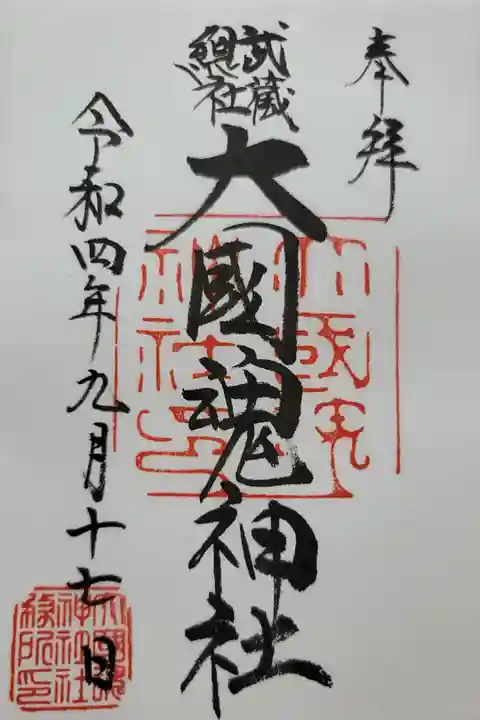 奉拝
武蔵
総社
大國魂神社
令和四年九月十七日
大國魂
神社
印
大國魂
神社社
務所印